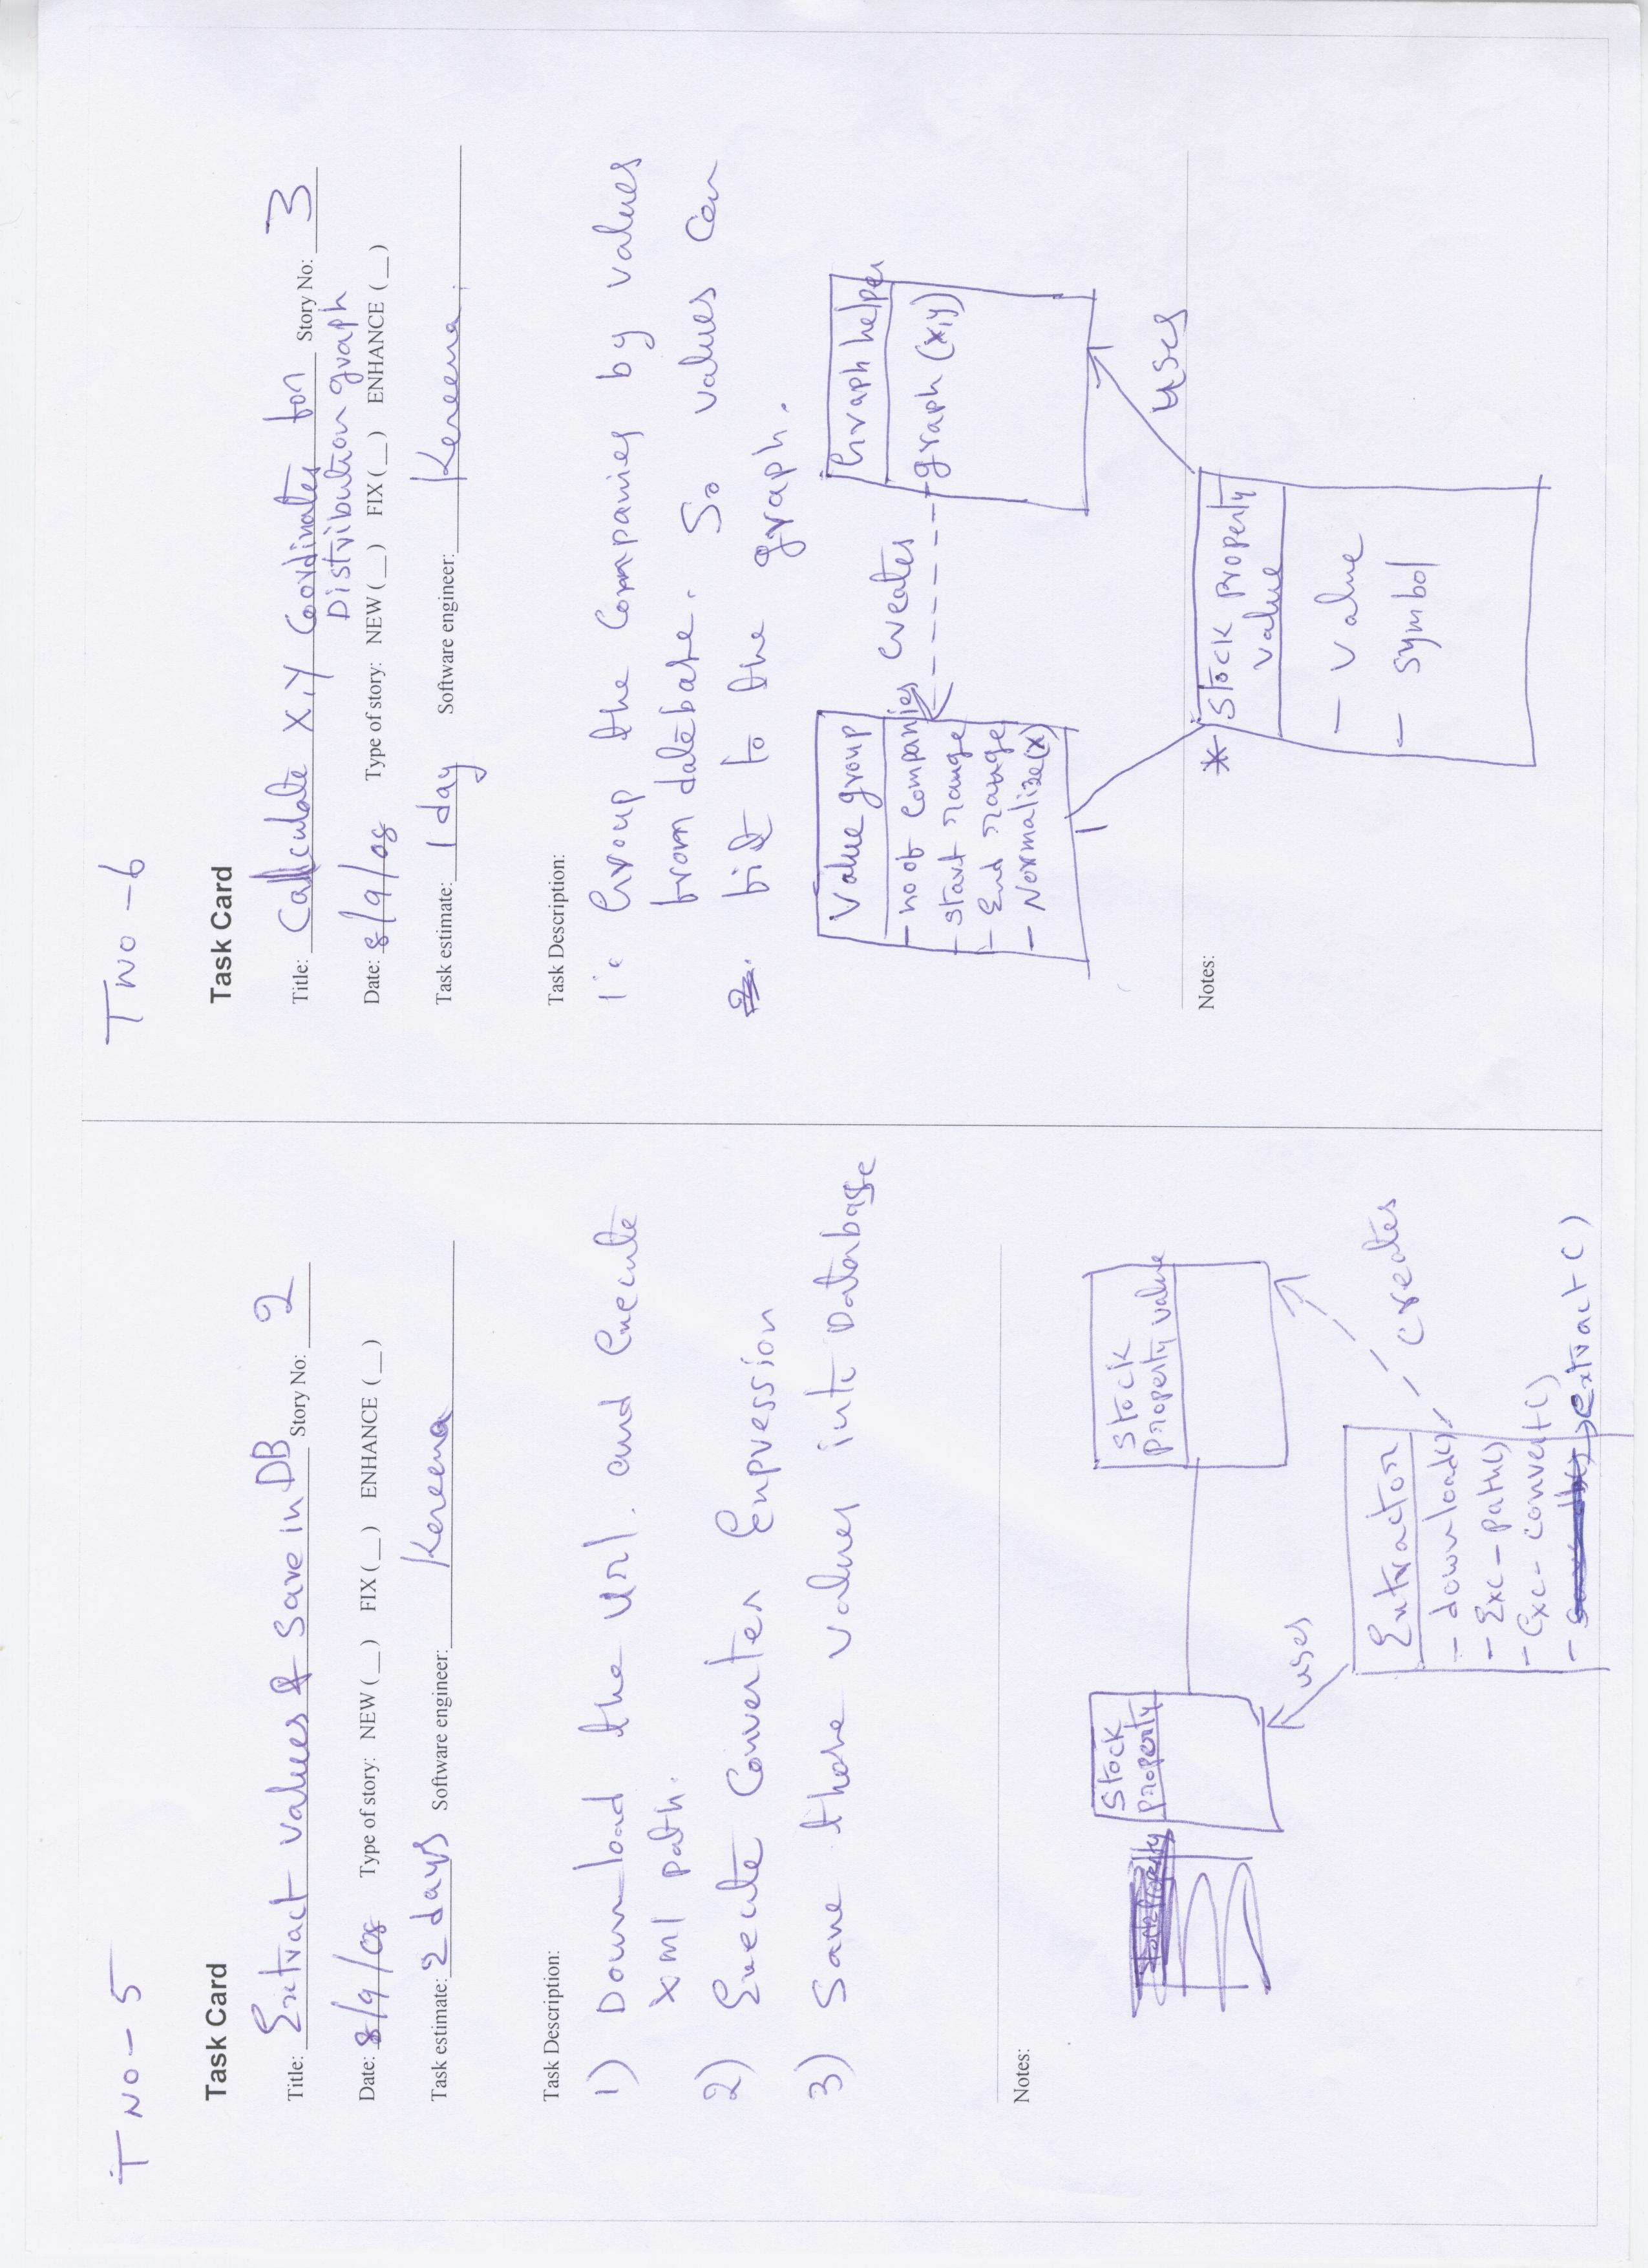 T NO-5
Task Card
Title: Extract values & Save in DB Story No: 2
Date: 8/9/08 Type of story: NEW (_) FIX (_) ENHANCE (_)
Task estimate: 2 days Software engineer: Kereena
Task Description:
1) Download the url. and Execute
xml path.
2) Execute Converter Expression
3) Save those values into Database
Notes:
Stock
Property
Stock
Property value
uses
creates
Extractor
- download()
- Exc-path()
- Exc-convert()
- extract()
T NO-6
Task Card
Title: Calculate X,Y Coordinates for Story No: 3
Distribution graph
Date: 8/9/08 Type of story: NEW (_) FIX (_) ENHANCE (_)
Task estimate: 1 day Software engineer: Kereena
Task Description:
1. Group the Companies by values
from database. So values can
fit to the graph.
Value group
- no of companies
- start range
- End range
- Normalize(x)
creates
Graph helper
- graph (x,y)
1
*
uses
Stock Property
value
- value
- symbol
Notes: